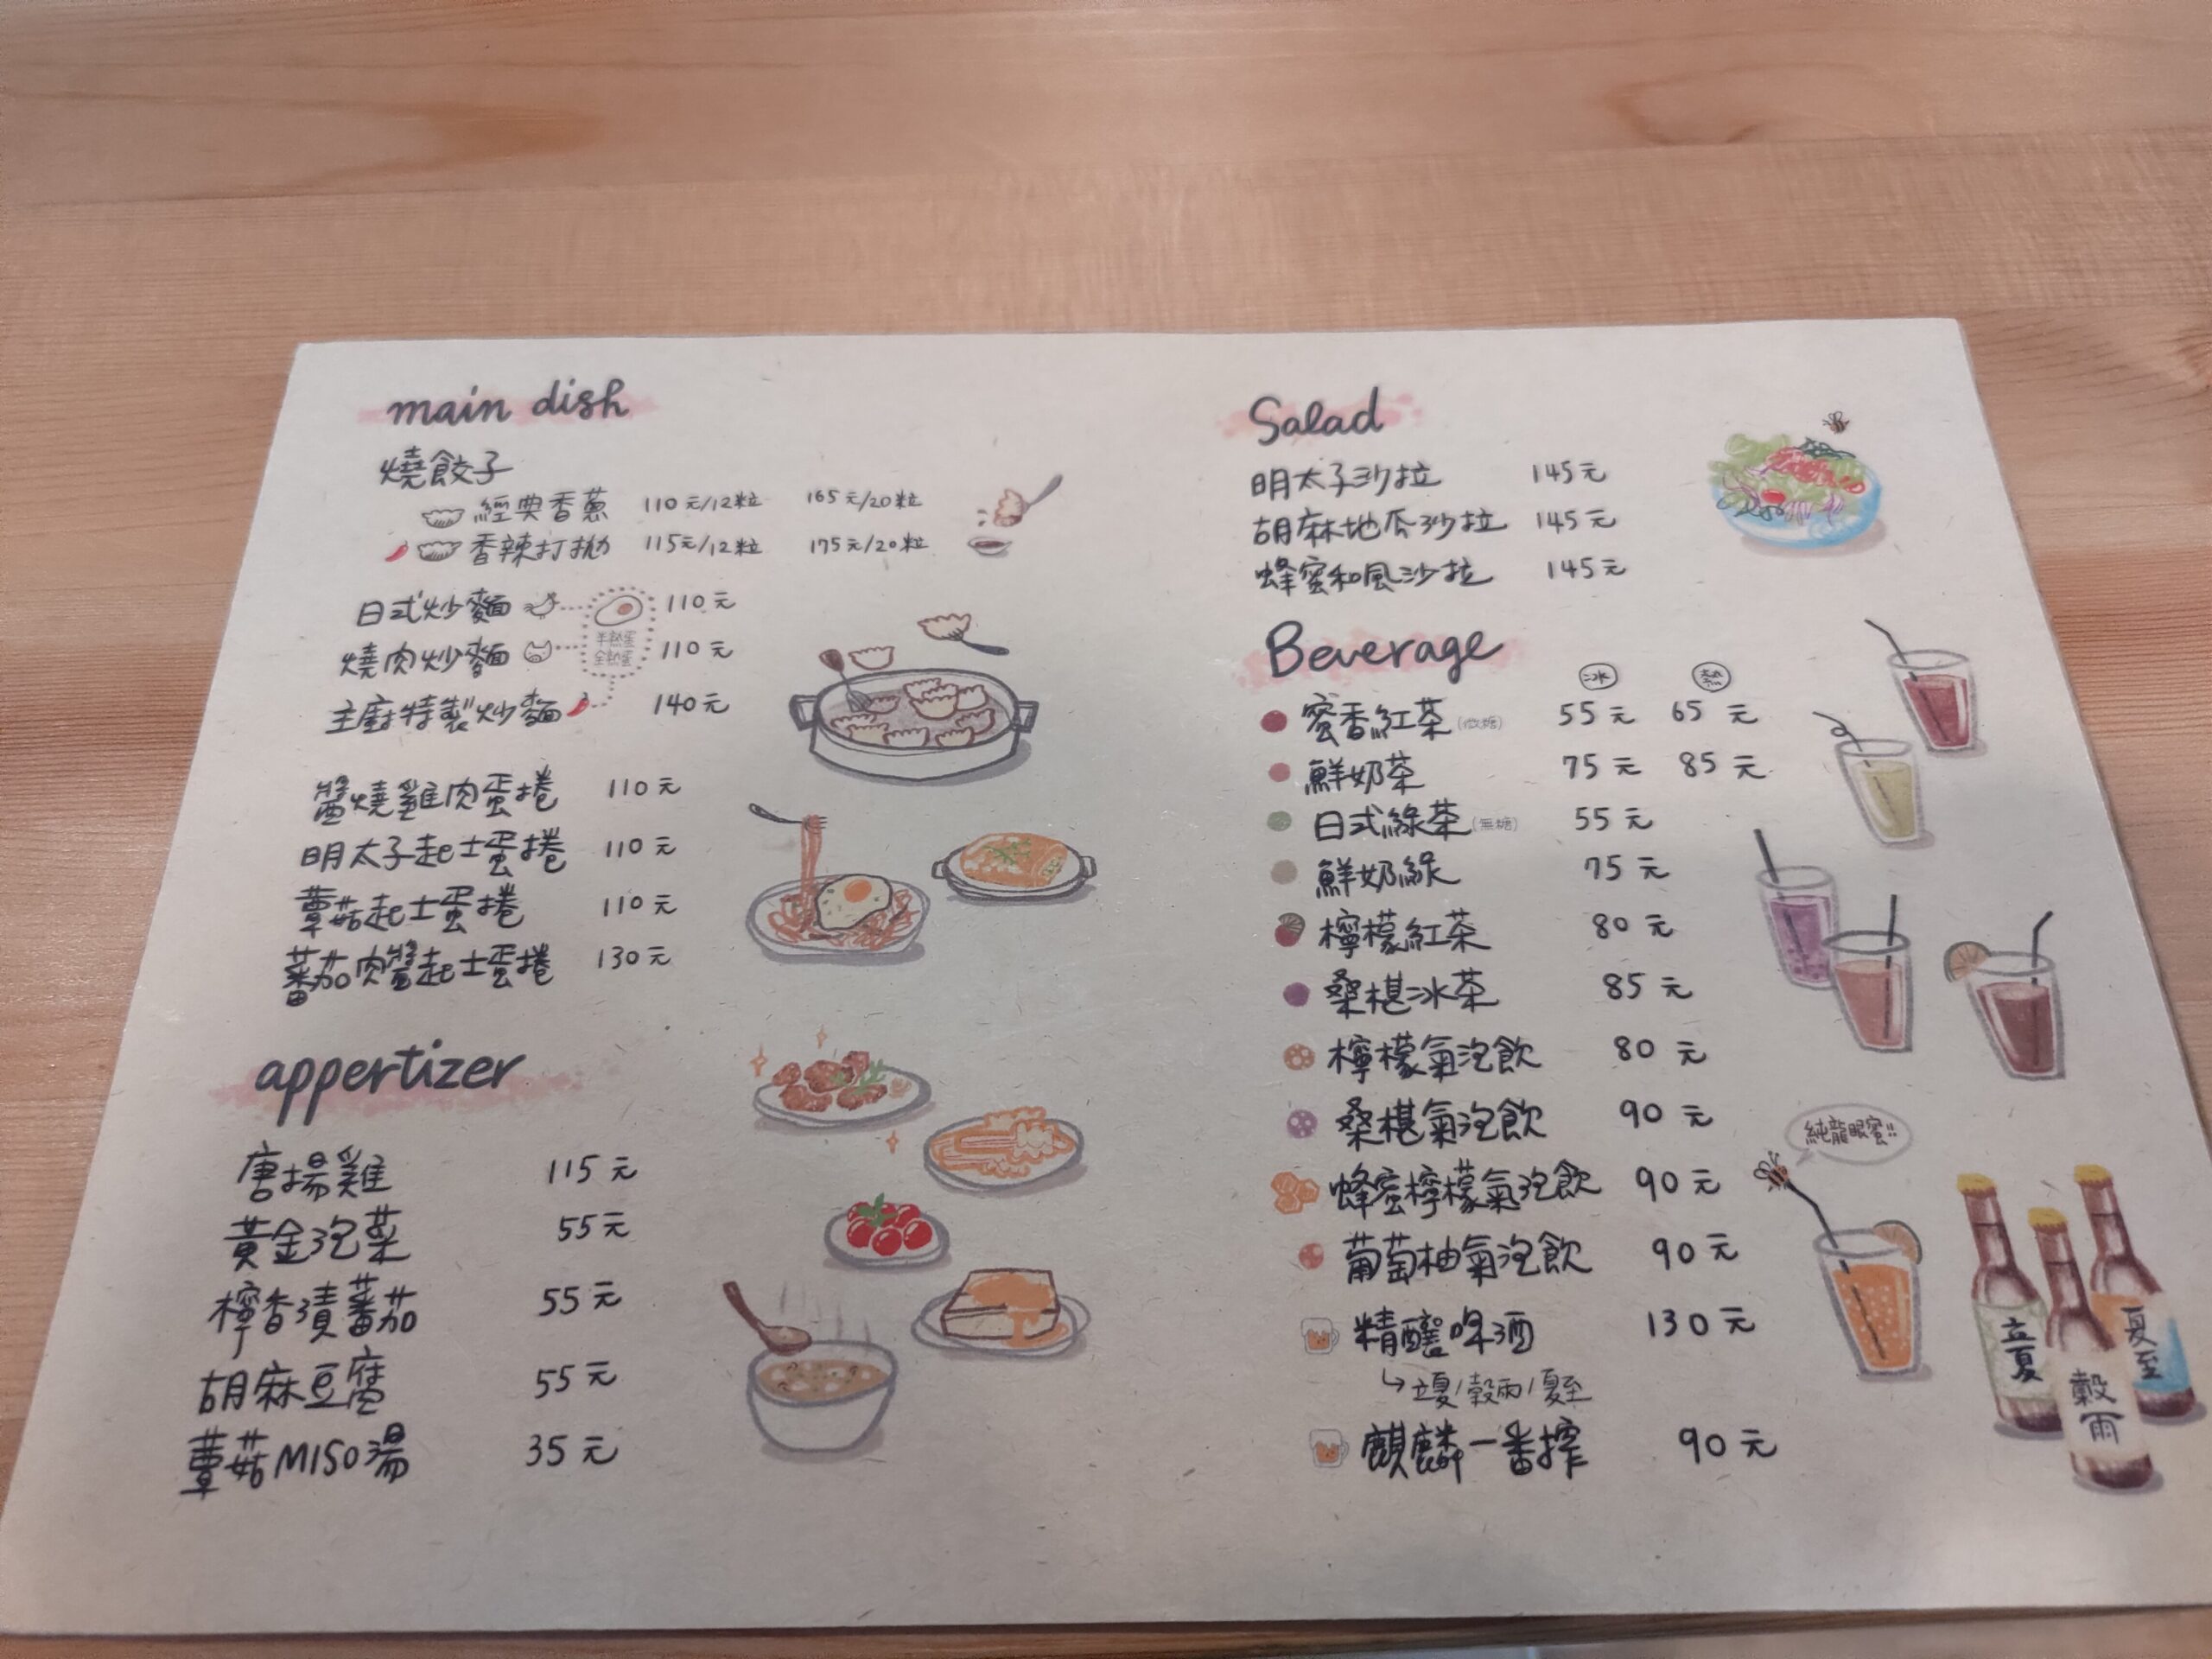 main dish
燒餃子
經典香蔥 110元/12粒 165元/20粒
香辣打拋 115元/12粒 175元/20粒
日式炒麵 110元
燒肉炒麵 110元
半熟蛋
全熟蛋
主廚特製炒麵 140元
醬燒雞肉蛋捲 110元
明太子起士蛋捲 110元
蕈菇起士蛋捲 110元
蕃茄肉醬起士蛋捲 130元
appertizer
唐揚雞 115元
黃金泡菜 55元
檸香漬蕃茄 55元
胡麻豆腐 55元
蕈菇MISO湯 35元
Salad
明太子沙拉 145元
胡麻地瓜沙拉 145元
蜂蜜和風沙拉 145元
Beverage
冰 熱
蜜香紅茶(微糖) 55元 65元
鮮奶茶 75元 85元
日式綠茶(無糖) 55元
鮮奶綠 75元
檸檬紅茶 80元
桑椹冰茶 85元
檸檬氣泡飲 80元
桑椹氣泡飲 90元
純龍眼蜜!!
蜂蜜檸檬氣泡飲 90元
葡萄柚氣泡飲 90元
精釀啤酒 130元
立夏/穀雨/夏至
麒麟一番搾 90元
立夏
穀雨
夏至